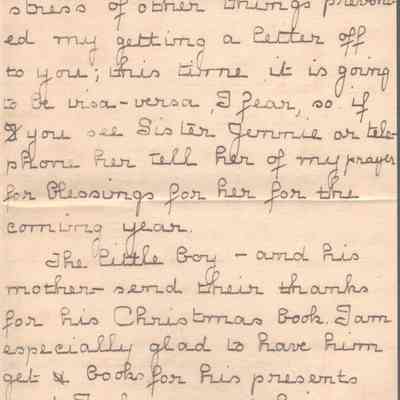 stress of other things prevent-
ed my getting a letter off
to you; this time it is going
to be visa-versa, I fear, so if
you see Sister Jennie or tele-
phone her tell her of my prayer
for blessings for her for the
coming year.
The little boy - and his
mother - send their thanks
for his Christmas book. I am
especially glad to have him
get books for his presents